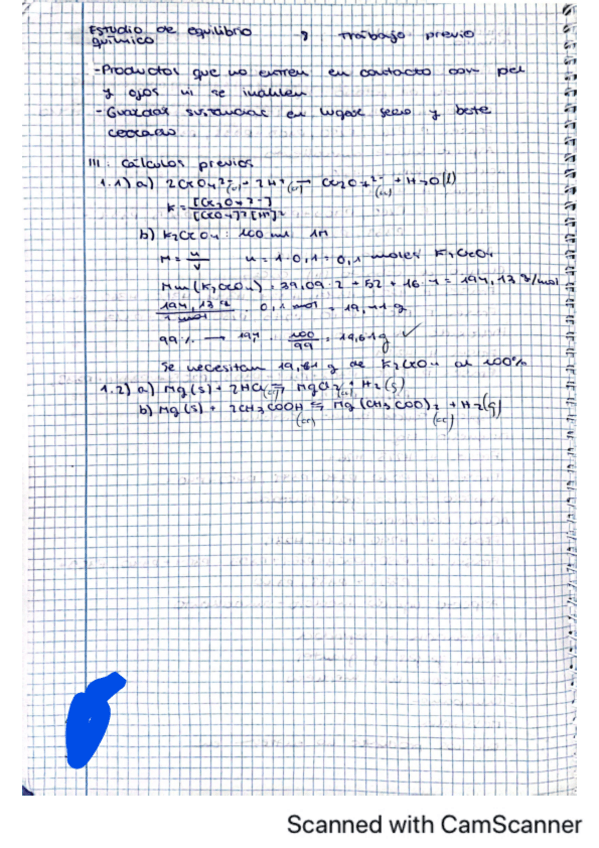 Estudio de equilibrio y trabajo previo
químico
-Productos que no entren en contacto con piel
y ojos ni se inhalen
-Guardar sustancias en lugar seco y bote
cerrado
III. Cálculos previos
1.1) a) 2CrO4²⁻(ac) + 2H⁺(ac) → Cr2O7²⁻(ac) + H2O(l)
K = [Cr2O7²⁻] / [CrO4]²[H⁺]²
b) K2CrO4: 100 ml 1M
M = n/V n = 1·0,1 = 0,1 moles K2CrO4
Mm(K2CrO4) = 39,09·2 + 52 + 16·4 = 194,13 g/mol
194,13 g / 1 mol · 0,1 mol = 19,41 g
99% → 19,4 · 100/99 = 19,61g ✓
Se necesitan 19,61 g de K2CrO4 al 100%
1.2) a) Mg(s) + 2HCl(ac) ⇆ MgCl2(ac) + H2(g)
b) Mg(s) + 2CH3COOH(ac) ⇆ Mg(CH3COO)2(ac) + H2(g)
Scanned with CamScanner